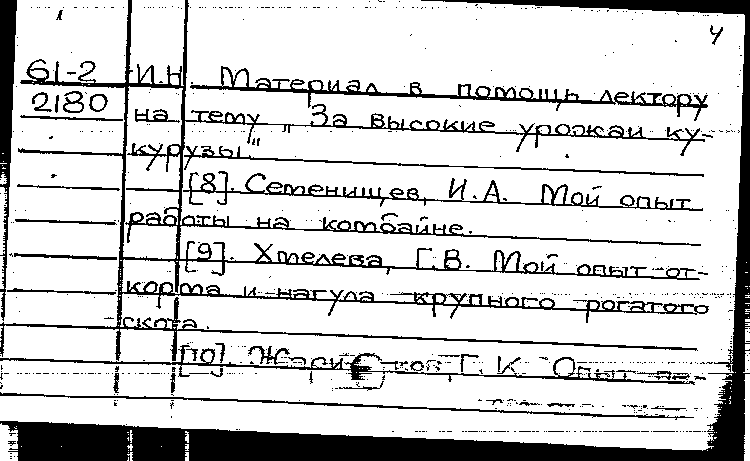 4
61-2 И.Н. Материал в помощь лектору
2180 на тему „За высокие урожаи ку-
курузы"
[8]. Сетенищев, И.А. Мой опыт
работы на комбайне.
[9]. Хмелева, Г.В. Мой опыт от-
корма и нагула крупного рогатого
скота.
[10]. Г.К. Опыт